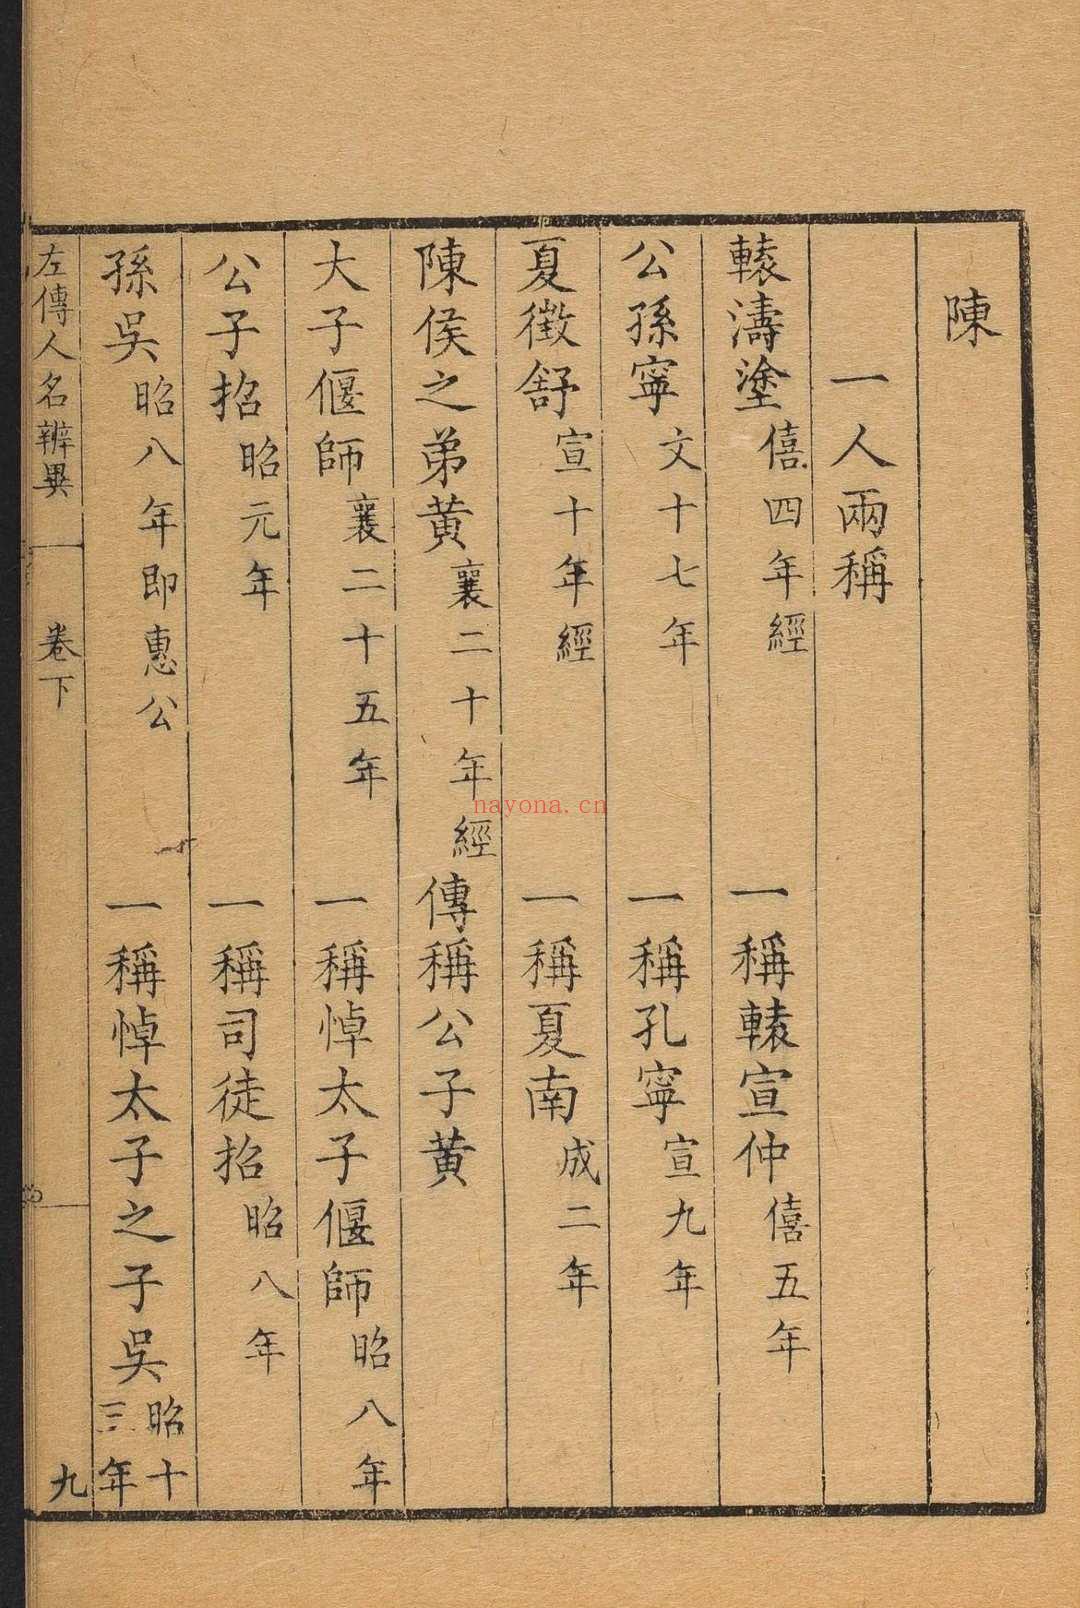 陳
一人兩稱
轅濤塗僖四年經 一稱轅宣仲僖五年
公孫寧文十七年 一稱孔寧宣九年
夏徵舒宣十年經 一稱夏南成二年
陳侯之弟黃襄二十年經傳稱公子黃
大子偃師襄二十五年 一稱悼太子偃師昭八年
公子招昭元年 一稱司徒招昭八年
孫吳昭八年即惠公 一稱悼太子之子吳昭十三年
左傳人名辨異 卷下 九
nayona.cn